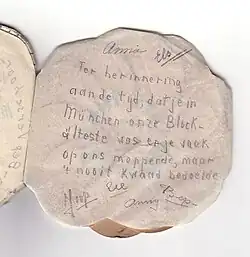 Annie Els
Ter herinnering
aan de tijd, dat je in
München onze Block-
älteste was en je vaak
op ons mopperde, maar
't nooit kwaad bedoelde
Anny